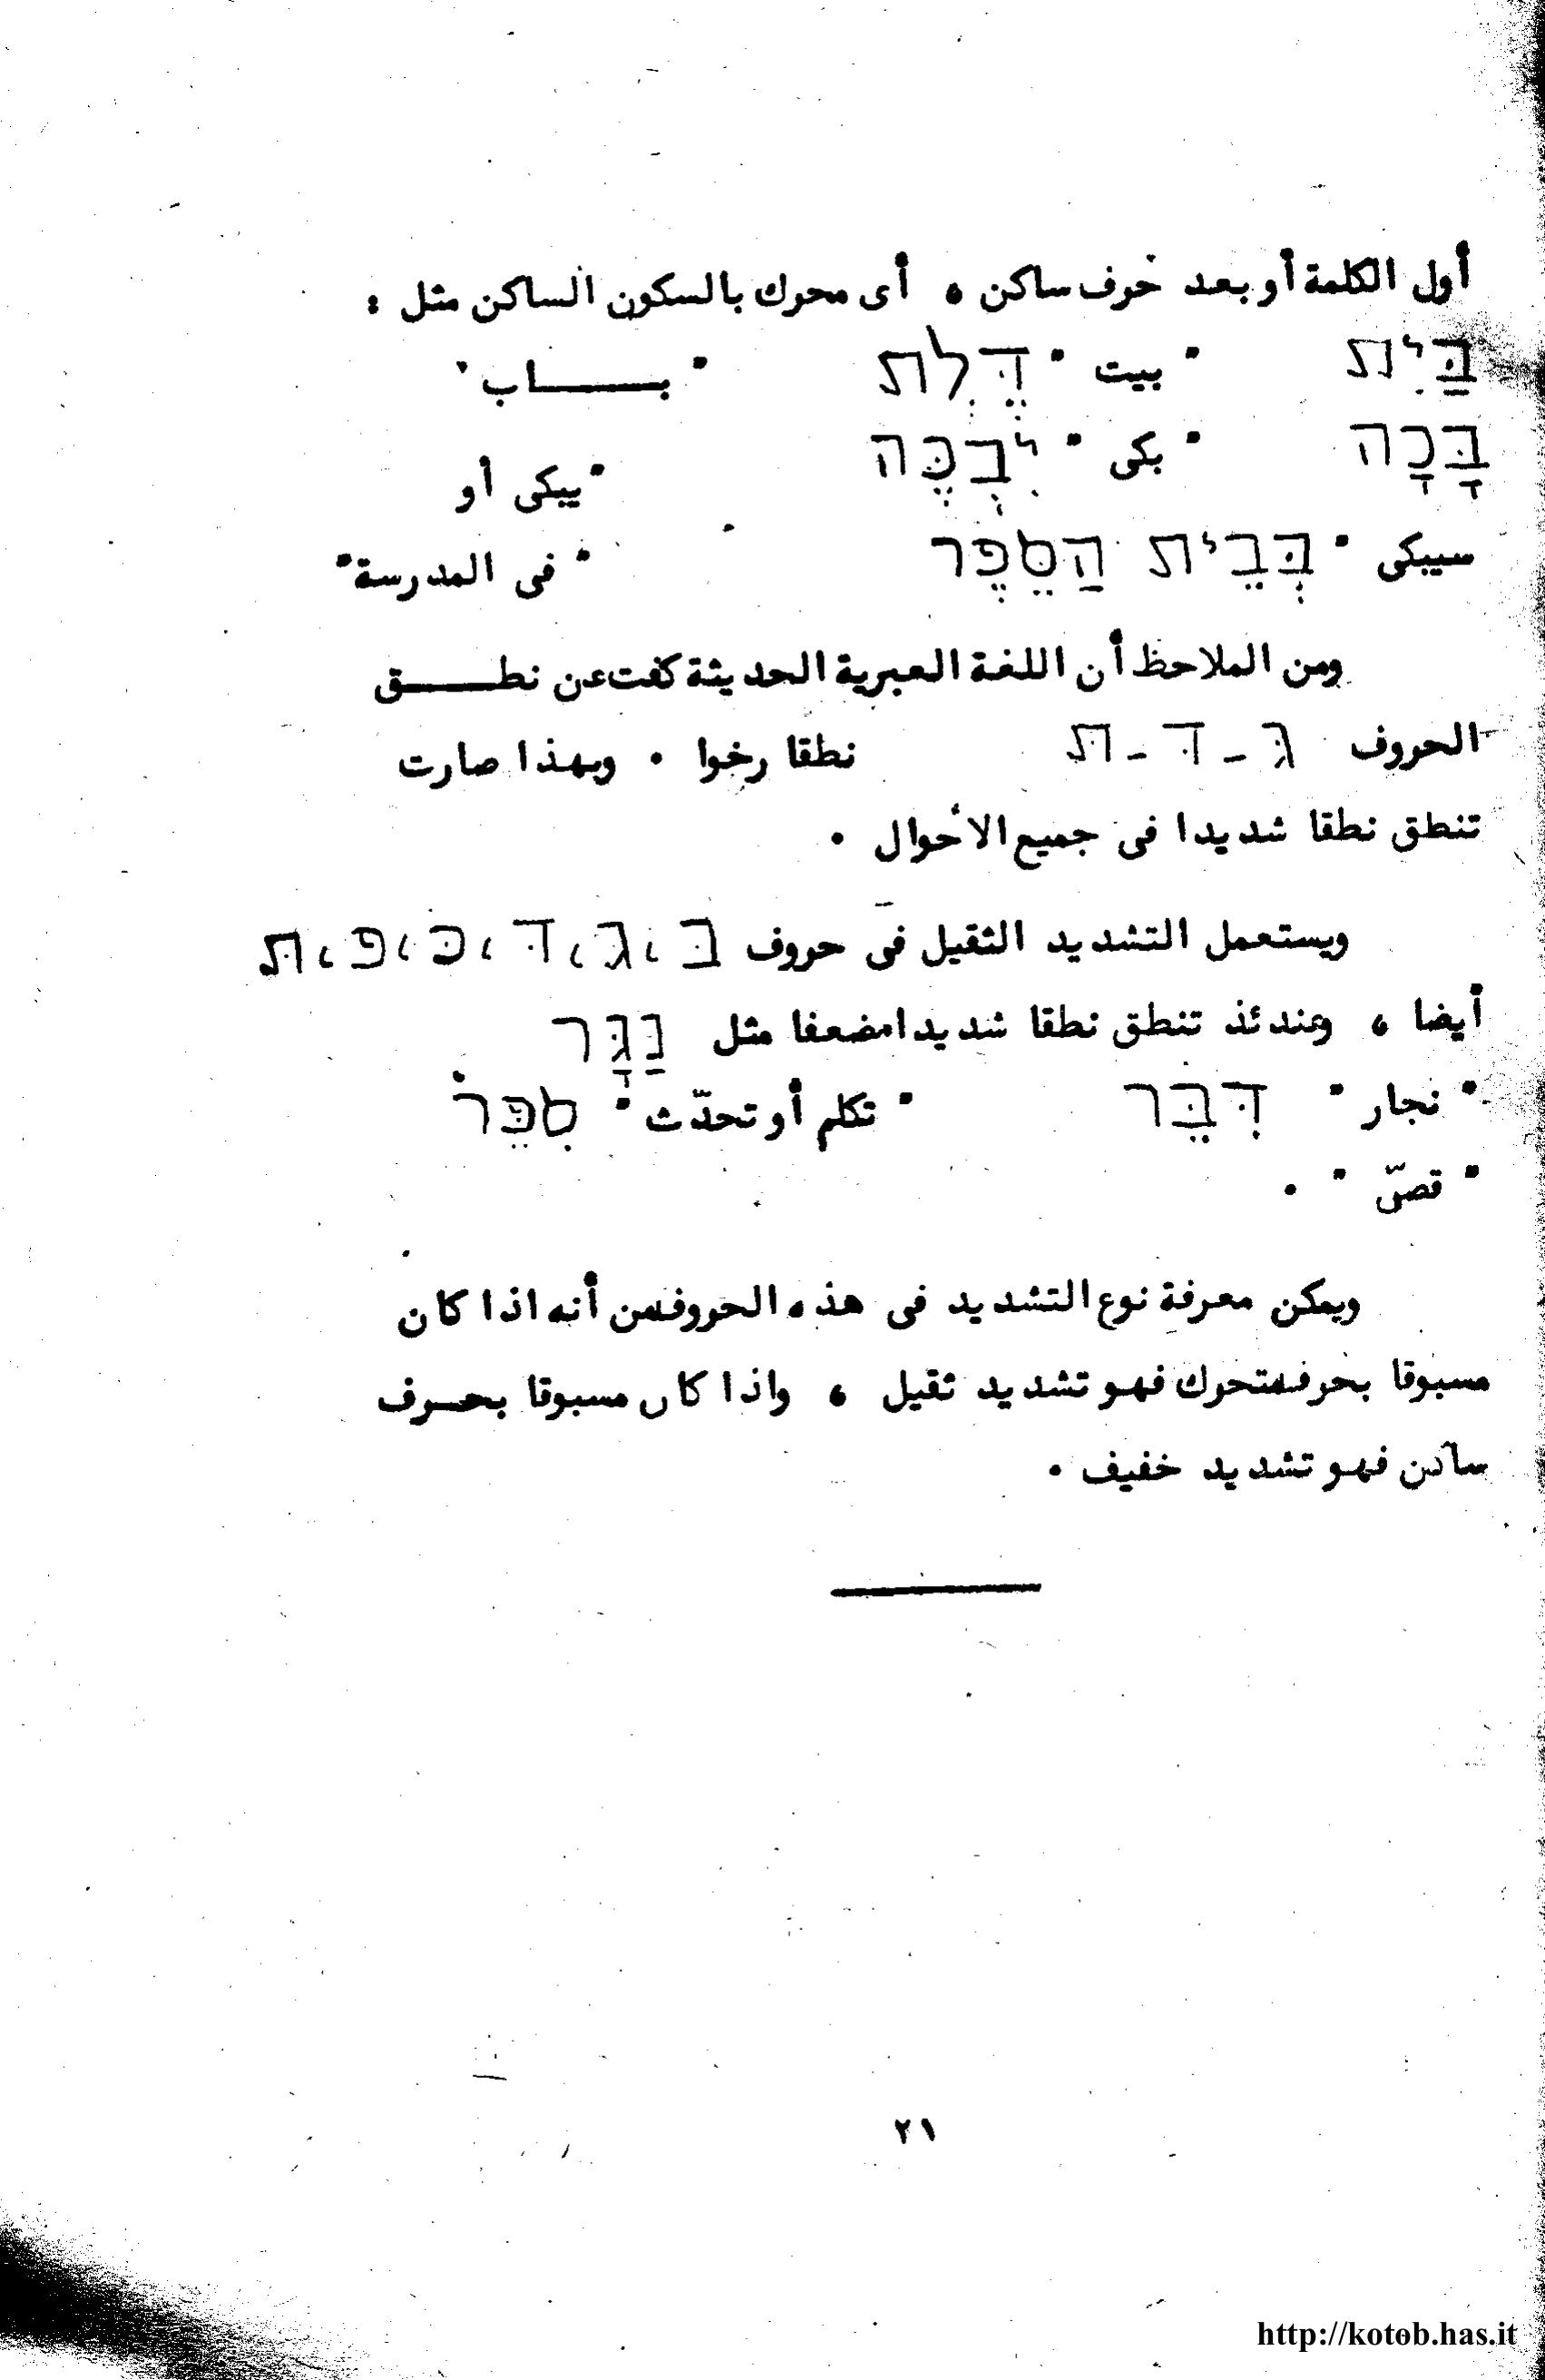 أول الكلمة أو بعد حرف ساكن ، أى محرك بالسكون الساكن مثل :
בַּיִת " بيت " דֶּלְת " بـــــاب "
בָּכָה " بكى " יִבְכֶּה " يبكى أو
سيبكى " בְּבֵית הַסֵפֶר " فى المدرسة "
ومن الملاحظ أن اللغة العبرية الحديثة كفت عن نطـــــق
الحروف ג - ד - ת نطقا رخوا . وبهذا صارت
تنطق نطقا شديدا فى جميع الأحوال .
ويستعمل التشديد الثقيل فى حروف בּ ، גּ ، דּ ، כּ ، פּ ، תּ
أيضا ، وعندئذ تنطق نطقا شديدا مضعفا مثل נַגָּר
" نجار " דִּבֵּר " تكلم أو تحدّث " סִפֵּר
" قصّ " .
ويمكن معرفة نوع التشديد فى هذه الحروف من أنه اذا كان
مسبوقا بحرف متحرك فهو تشديد ثقيل ، واذا كان مسبوقا بحـرف
ساكن فهو تشديد خفيف .
٢١
http://kotob.has.it